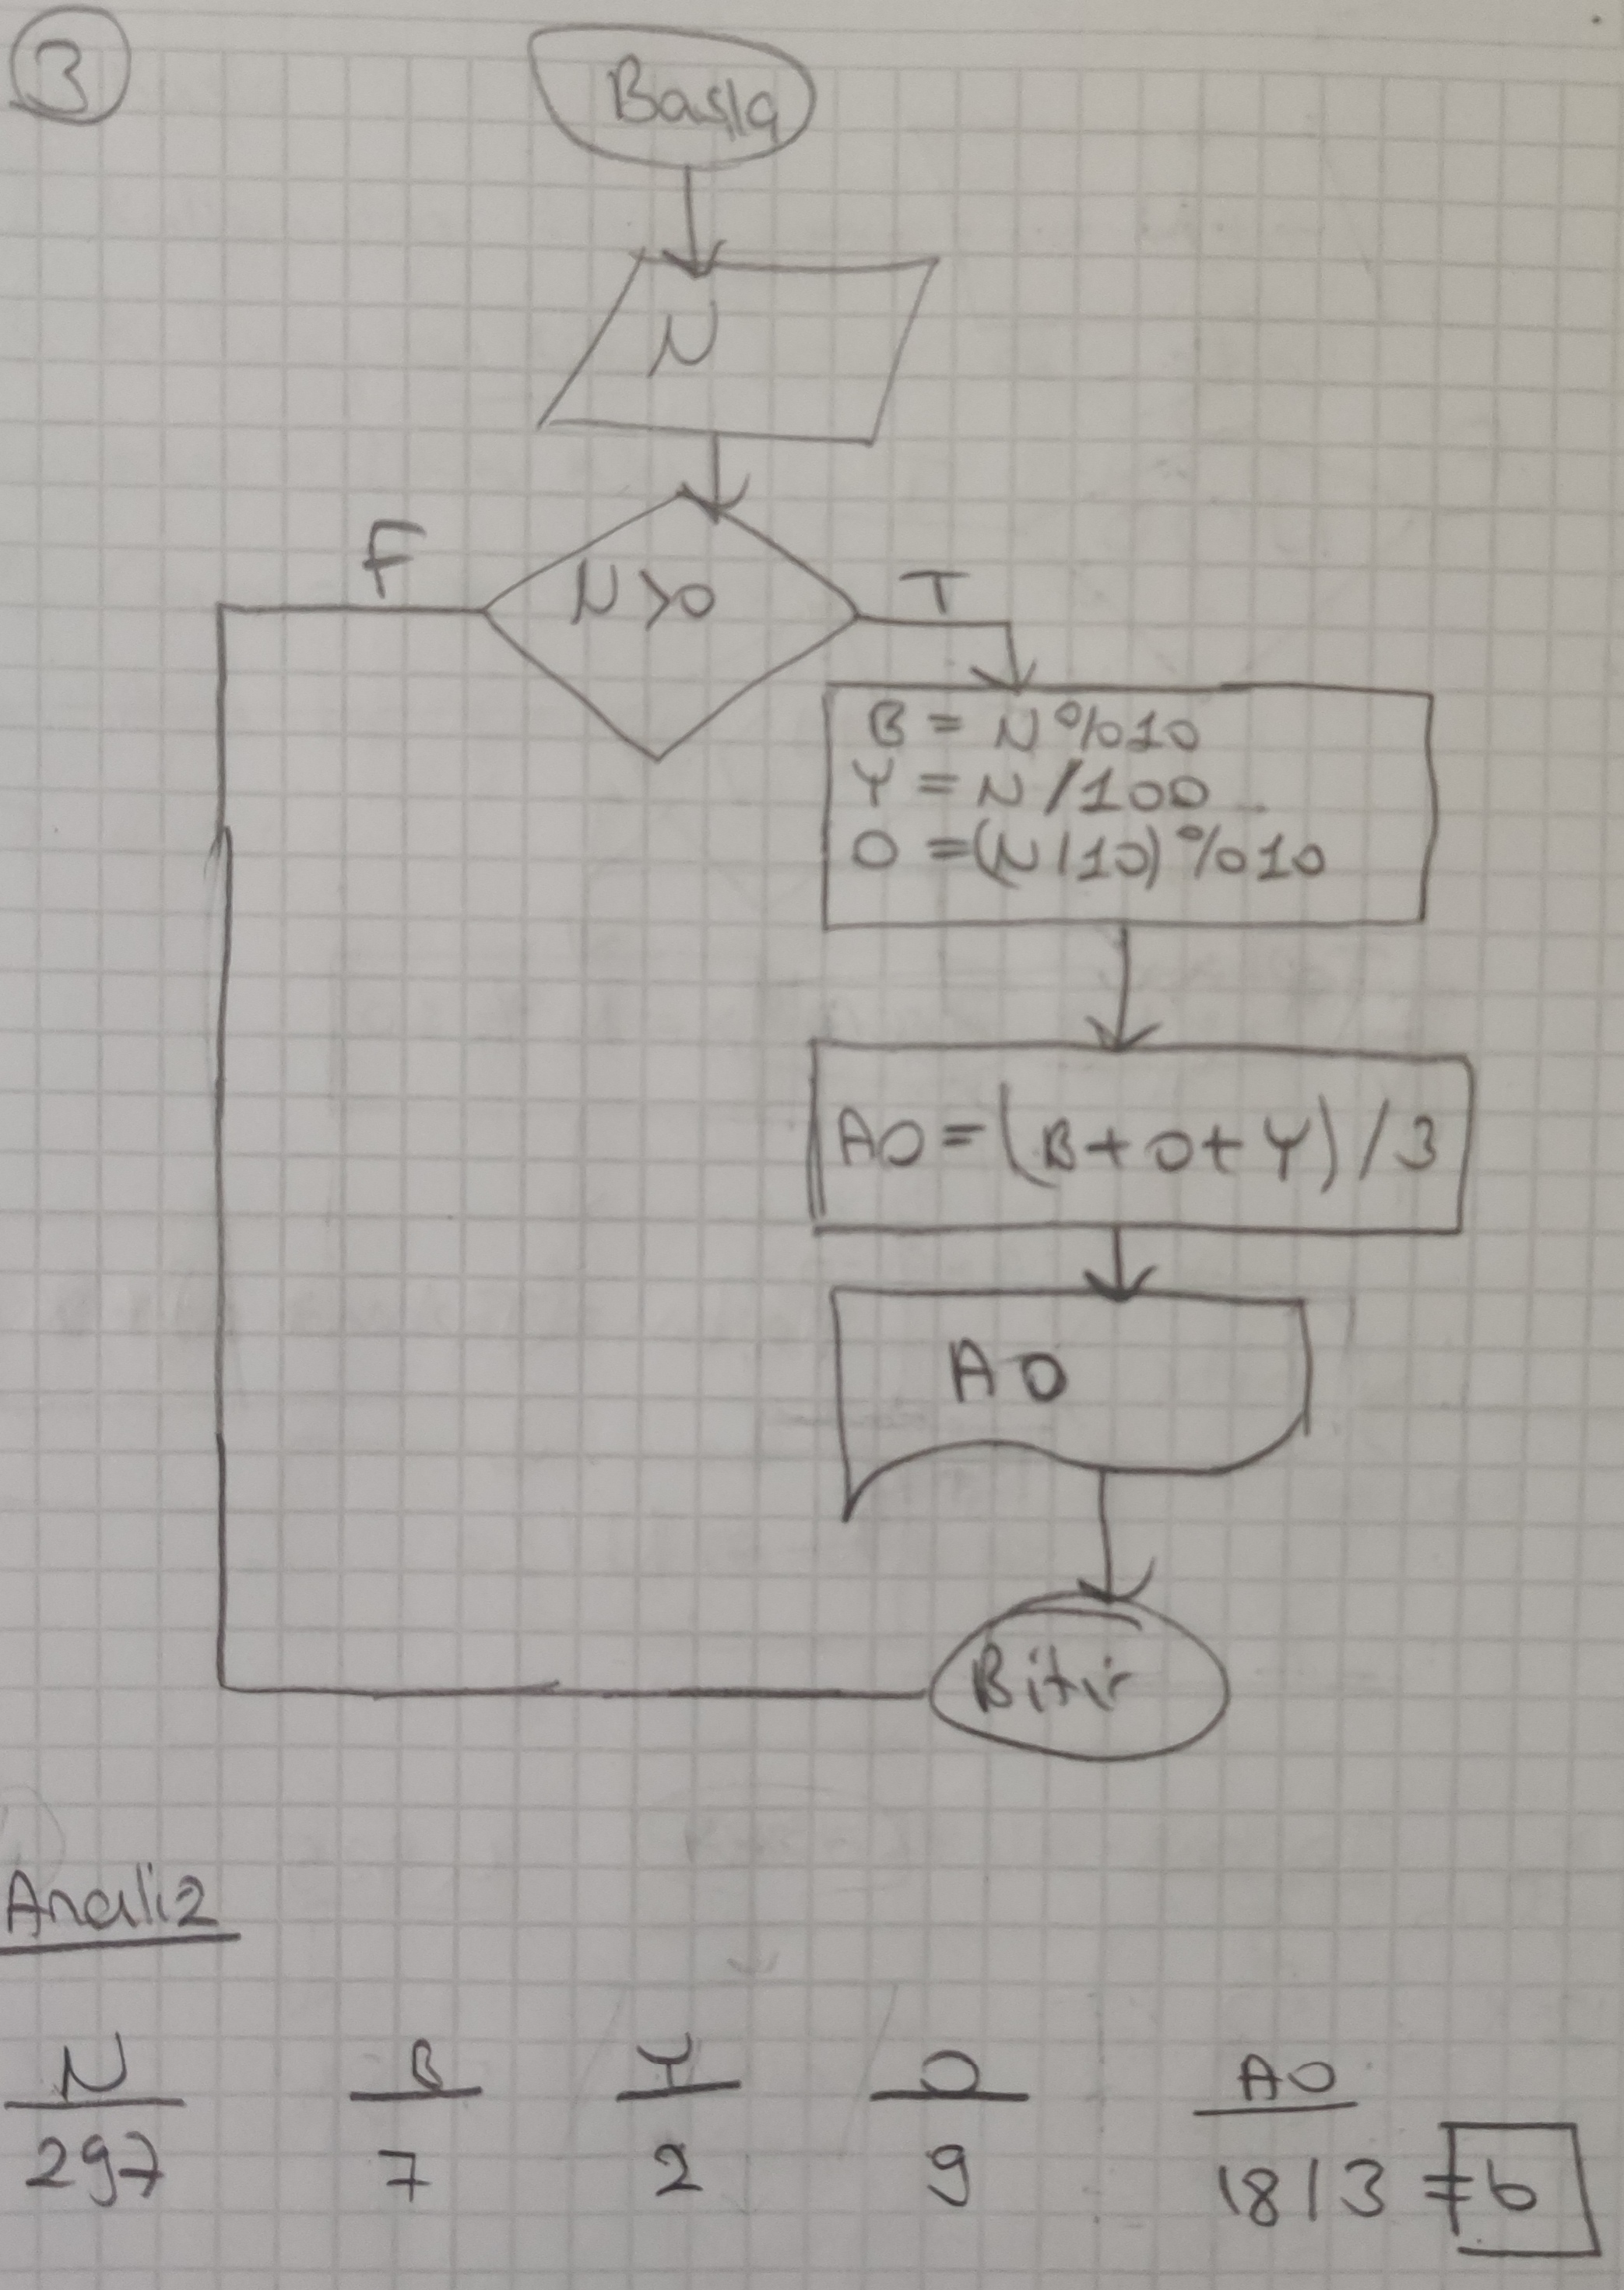 3
Başla
N
N>0
F
T
B = N%10
Y = N/100
O = (N/10)%10
AO = (B+O+Y)/3
AO
Bitir
Analiz
N B Y O AO
297 7 2 9 18/3 = 6